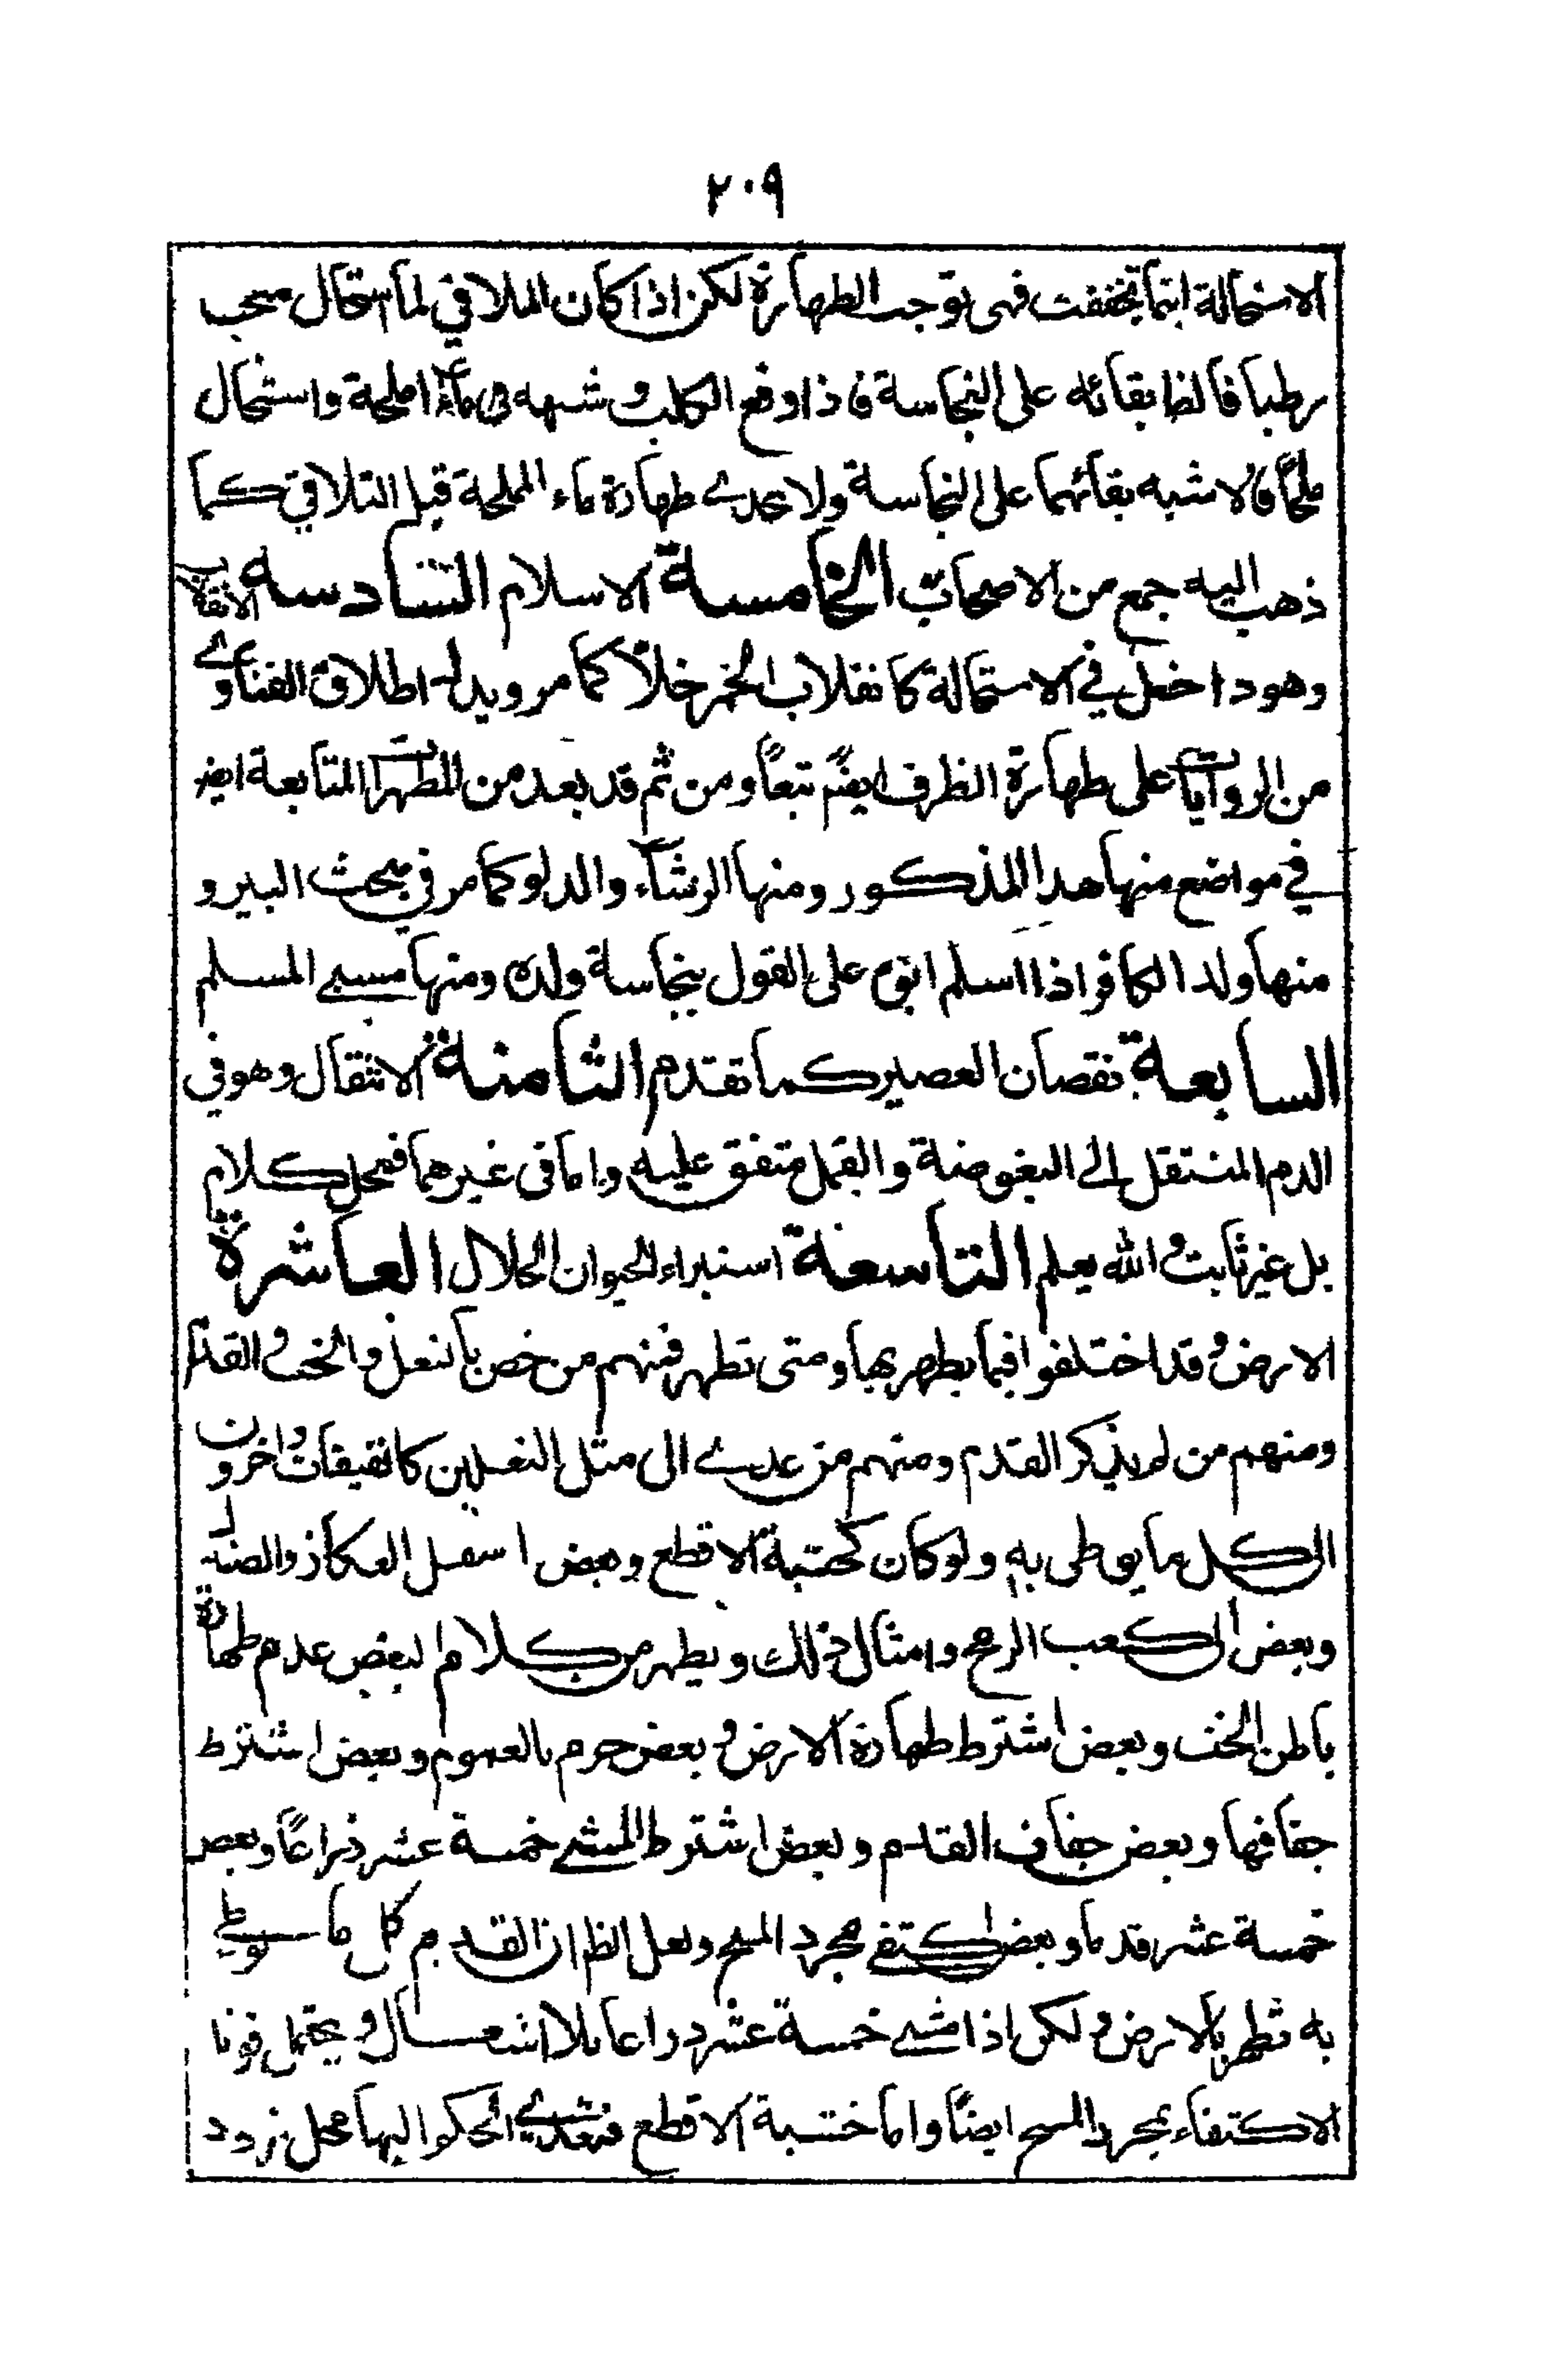 ٢٠٩
الاستحالة اينما تحققت فهى توجب الطهارة لكن اذا كان الملاقي لما استحال
رطبا فالظ بقائه على النجاسة فاذا وقع الكلب و شبهه فى ماء المملحة واستحال
ملحاً فالاشبه بقائهما على النجاسة ولا يجدى طهارة ماء المملحة قبل التلاقي كما
ذهب اليه جمع من الاصحاب الخامسة الاسلام السادسه الانقلاب
وهو داخل في الاستحالة كانقلاب الخمر خلاً كما مر ويدل اطلاق الفتاوى
من الروايات على طهارة الظرف ايضً تبعاً ومن ثم قد يعد من المطهرات المتابعة ايض
في مواضع منها هذا المذكور ومنها الرشاء والدلو كما مر في مبحث البير و
منها ولد الكافر اذا اسلم ابوه على القول بنجاسة ولده ومنها مسبى المسلم
السابعة نقصان العصير كما تقدم الثامنة الانتقال وهو في
الدم المنتقل الى البغوضة والقمل متفق عليه واما فى غيرهما فمحل كلام
بل غير ثابت والله يعلم التاسعة استبراء الحيوان الحلال العاشرة
الارض وقد اختلفوا فيما يطهر بها ومتى تطهر فمنهم من خص بالنعل والخف والقدم
ومنهم من لم يذكر القدم ومنهم من عدى الى مثل النعلين كالقبقاب واخرون
الى كل ما يوطى به ولو كان كخشبة الاقطع وبعض اسفل العكاز والصندل
وبعض الى كعب الرمح وامثال ذلك ويظهر من كلام لبعض عدم طهارة
باطن الخف وبعض اشترط طهارة الارض وبعض جزم بالعموم وبعض اشترط
جفافها وبعض جفاف القدم وبعض اشترط المشى خمسة عشر ذراعاً وبعض
خمسة عشر قدما وبعض اكتفى بمجرد المسح ولعل الظ ان القدم كل ما يوطى
به تطهر بالارض ولكن اذا مشى خمسة عشر ذراعا بلا ويحتمل قويا
الاكتفاء بمجرد المسح ايضاً واما خشبة الاقطع فتعدى الحكم اليها محل تردد